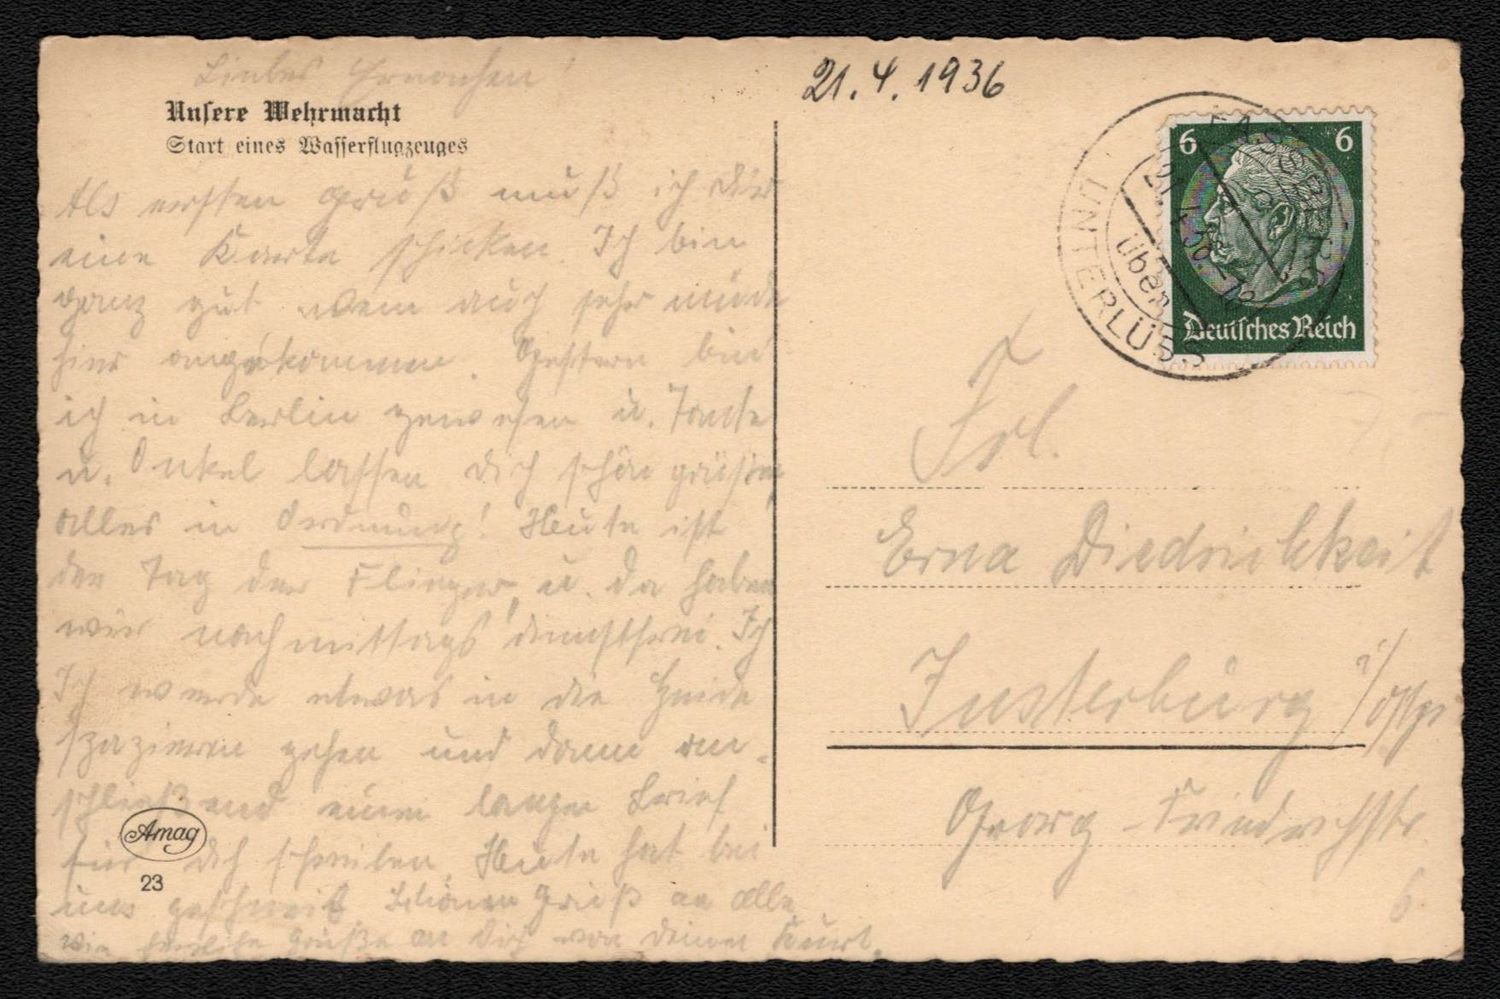 Liebes Ernachen!
21.4.1936
Unsere Wehrmacht
Start eines Wasserflugzeuges
Als ersten Gruß muß ich Dir
eine Karte schicken. Ich bin
ganz gut wenn auch sehr müde
hier angekommen. Gestern bin
ich in Berlin gewesen u. Tante
u. Onkel lassen dich schön grüßen
alles in Ordnung! Heute ist
der Tag der Flieger, u. da haben
wir nachmittags dienstfrei. Ich
Ich werde etwas in die Heide
spazieren gehen und dann an-
schließend einen langen Brief
für dich schreiben. Heute hat bei
uns geschneit. Schönen Gruß an alle
herzliche Grüße an Dich von deinem Kurt.
Amag
23
6 6
Deutsches Reich
FASSBERG
21.4.36
über
UNTERLÜSS
Frl.
Erna Diedrichkeit
Insterburg i/Ostpr.
Georg-Friedrichstr.
6